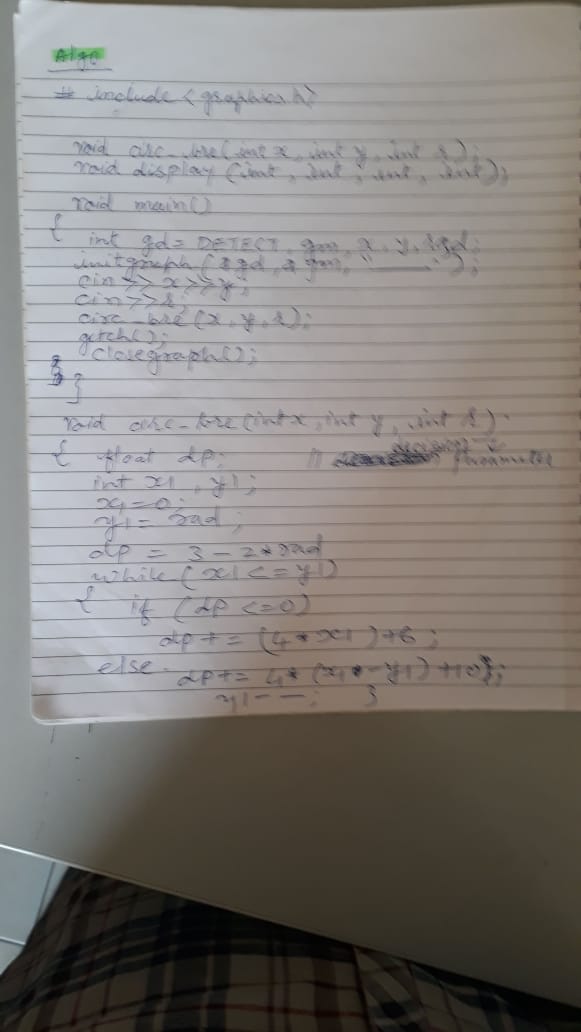 Algo
# include <graphics.h>
void circ_bre(int x, int y, int r);
void display (int, int, int, int);
void main()
{ int gd = DETECT, gm, x, y,
initgraph (&gd, & gm, " ");
cin >> x >> y;
cin >> r;
circ_bre (x, y, r);
getch();
closegraph();
}
}
void circ_bre (int x, int y, int r)
{ float dp; // decision parameter
int x1, y1;
x1 = 0;
y1 = rad;
dp = 3 - 2*rad
while (x1 <= y1)
{ if (dp <= 0)
dp += (4 * x1) + 6;
else dp += 4* (x1 - y1) + 10};
y1--; }